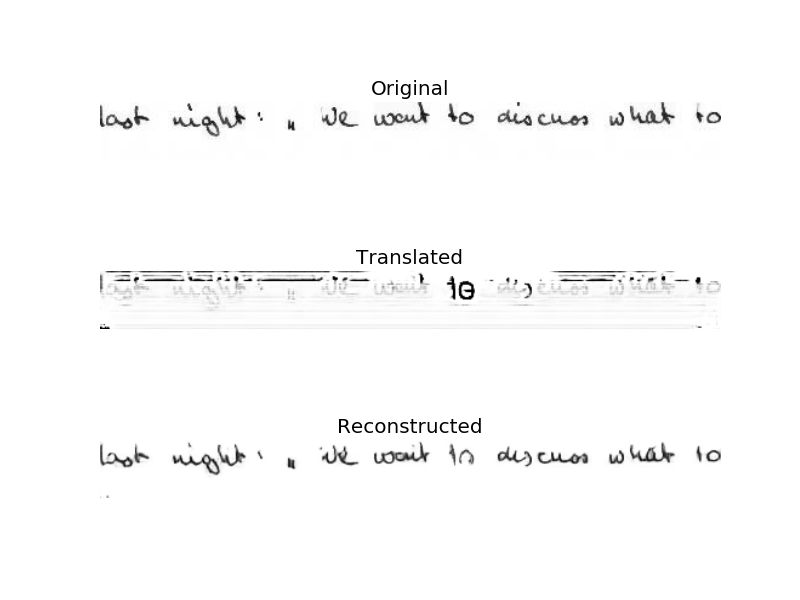 Original
last night : „ We want to discuss what to
Translated
last night : „ We want to discuss what to
Reconstructed
last night : „ We want to discuss what to